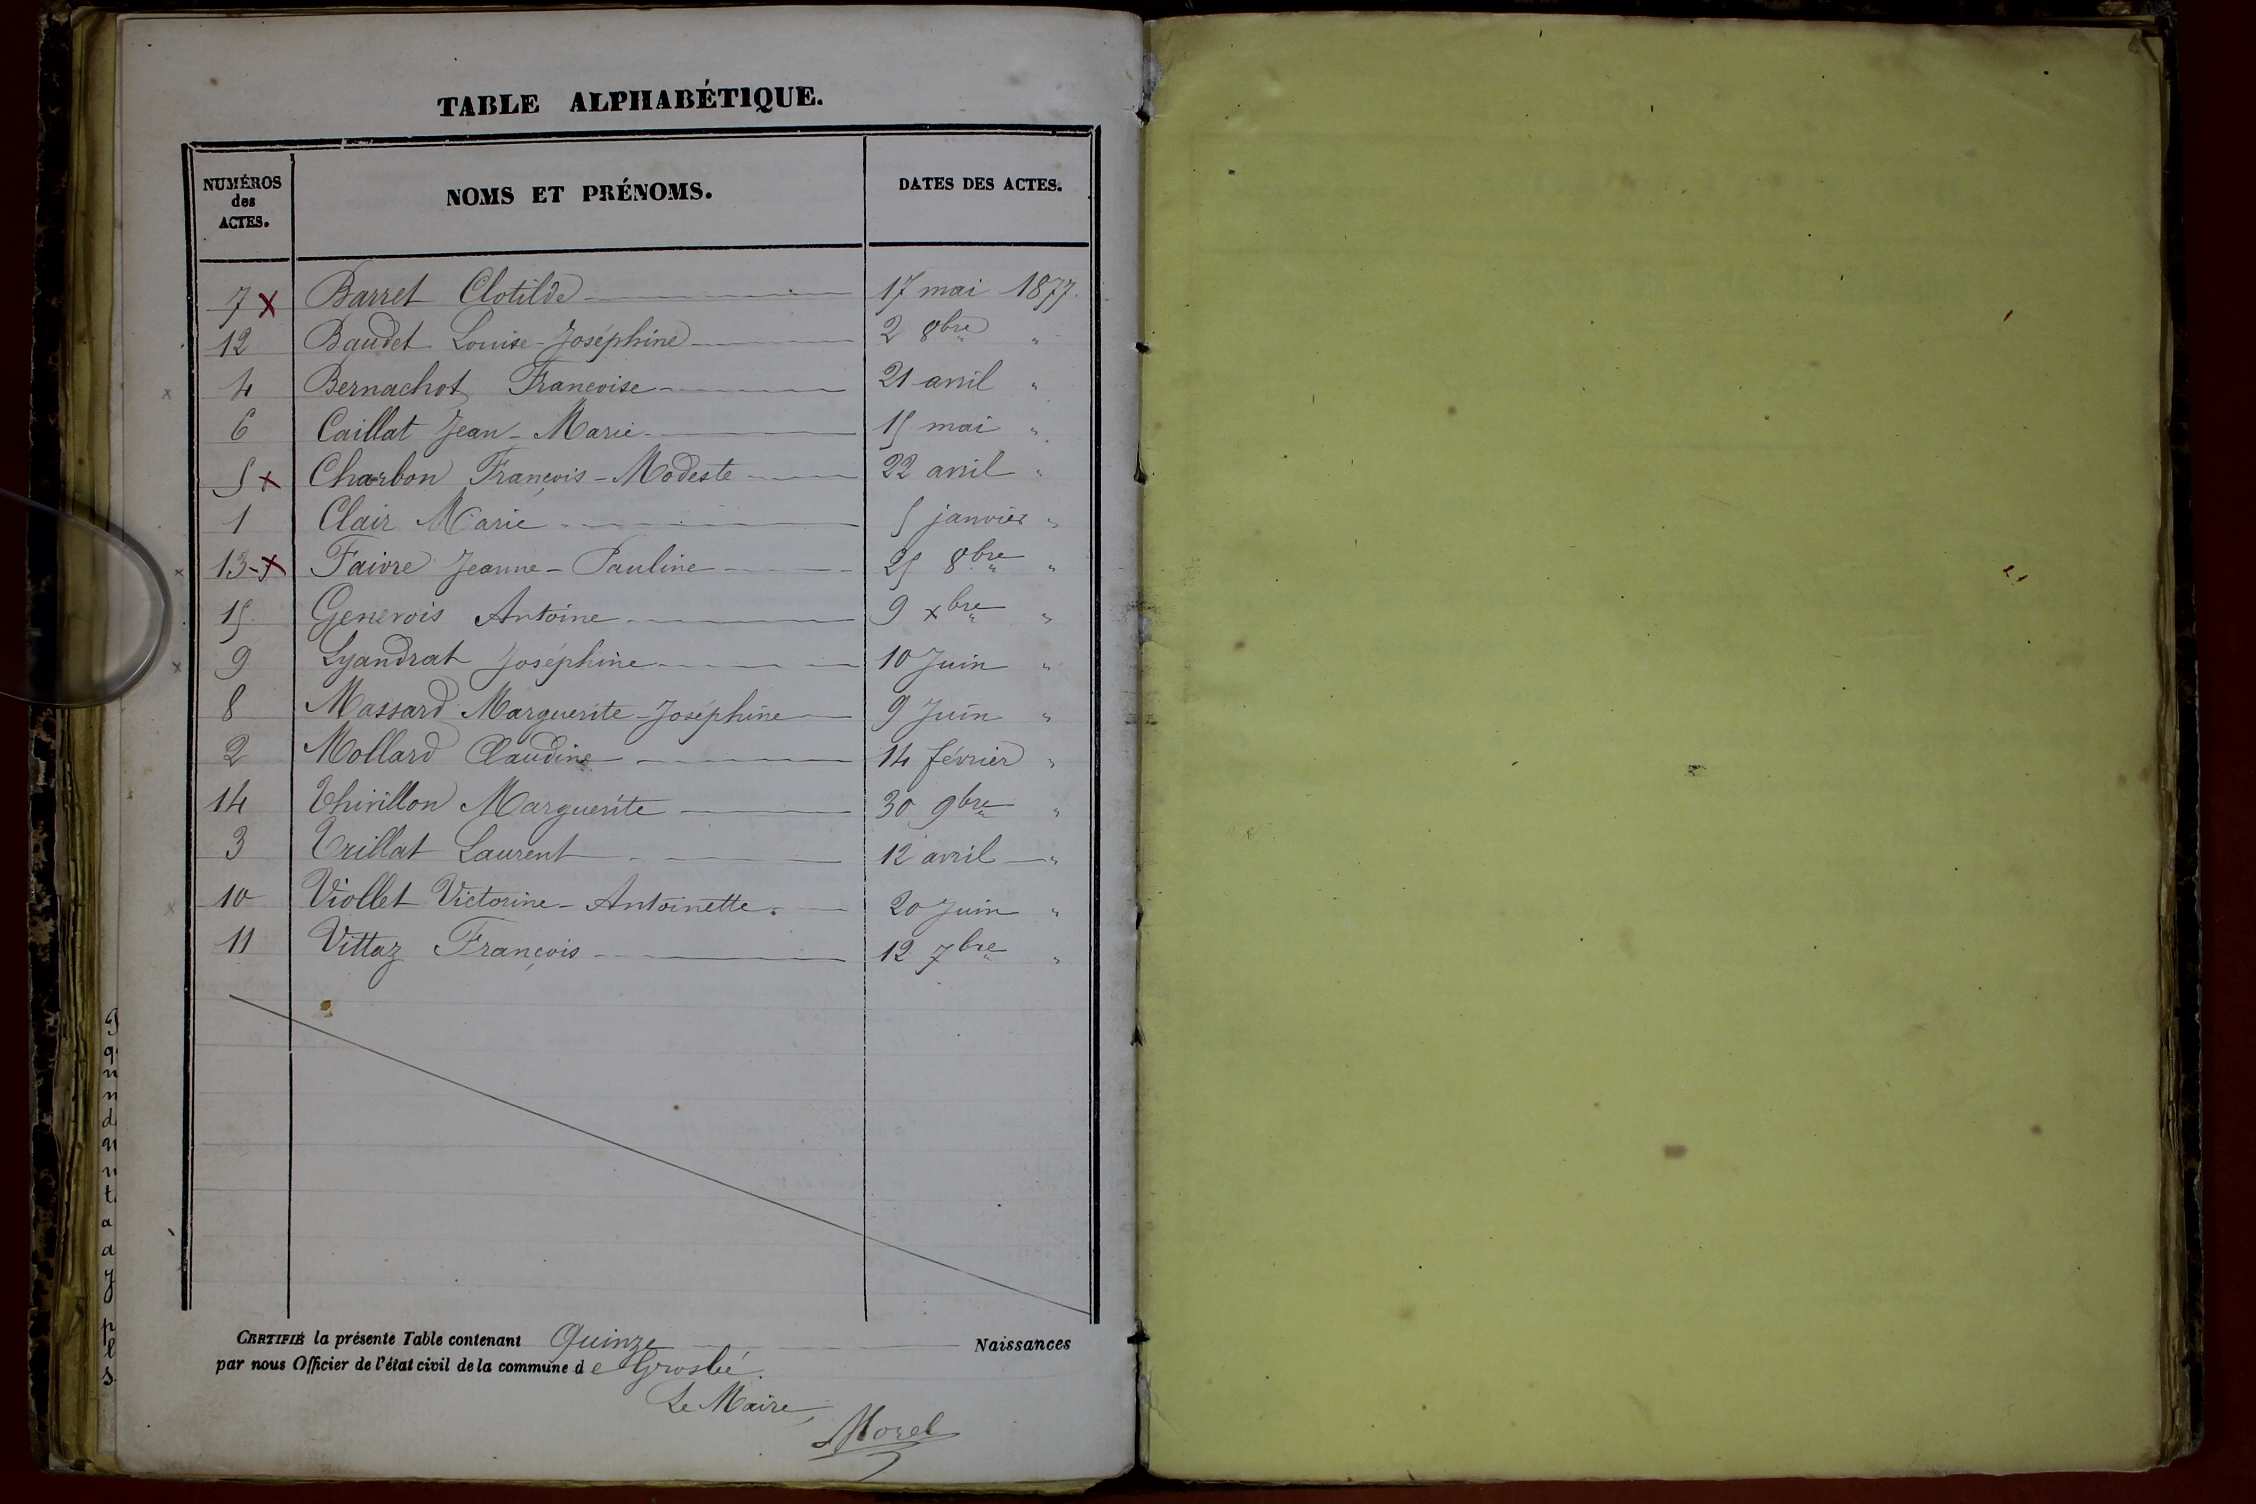 TABLE ALPHABÉTIQUE.
NUMÉROS des ACTES. NOMS ET PRÉNOMS. DATES DES ACTES.
7 x Barret Clotilde 17 mai 1877.
12 Baudet Louise-Joséphine 2 8bre "
4 Bernachot Françoise 21 avril "
6 Caillat Jean-Marie 15 mai "
5 x Charbon François-Modeste 22 avril "
1 Clair Marie 5 janvier "
13-x Faivre Jeanne-Pauline 25 8bre "
15 Genevois Antoine 9 xbre "
9 Lyandrat Joséphine 10 Juin "
8 Massard Marguerite-Joséphine 9 Juin "
2 Mollard Claudine 14 février "
14 Thivillon Marguerite 30 9bre "
3 Trillat Laurent 12 avril "
10 Viollet Victorine-Antoinette. 20 Juin "
11 Vittaz François 12 7bre "
CERTIFIÉ la présente Table contenant Quinze Naissances
par nous Officier de l'état civil de la commune de Groslée.
Le Maire,
Morel